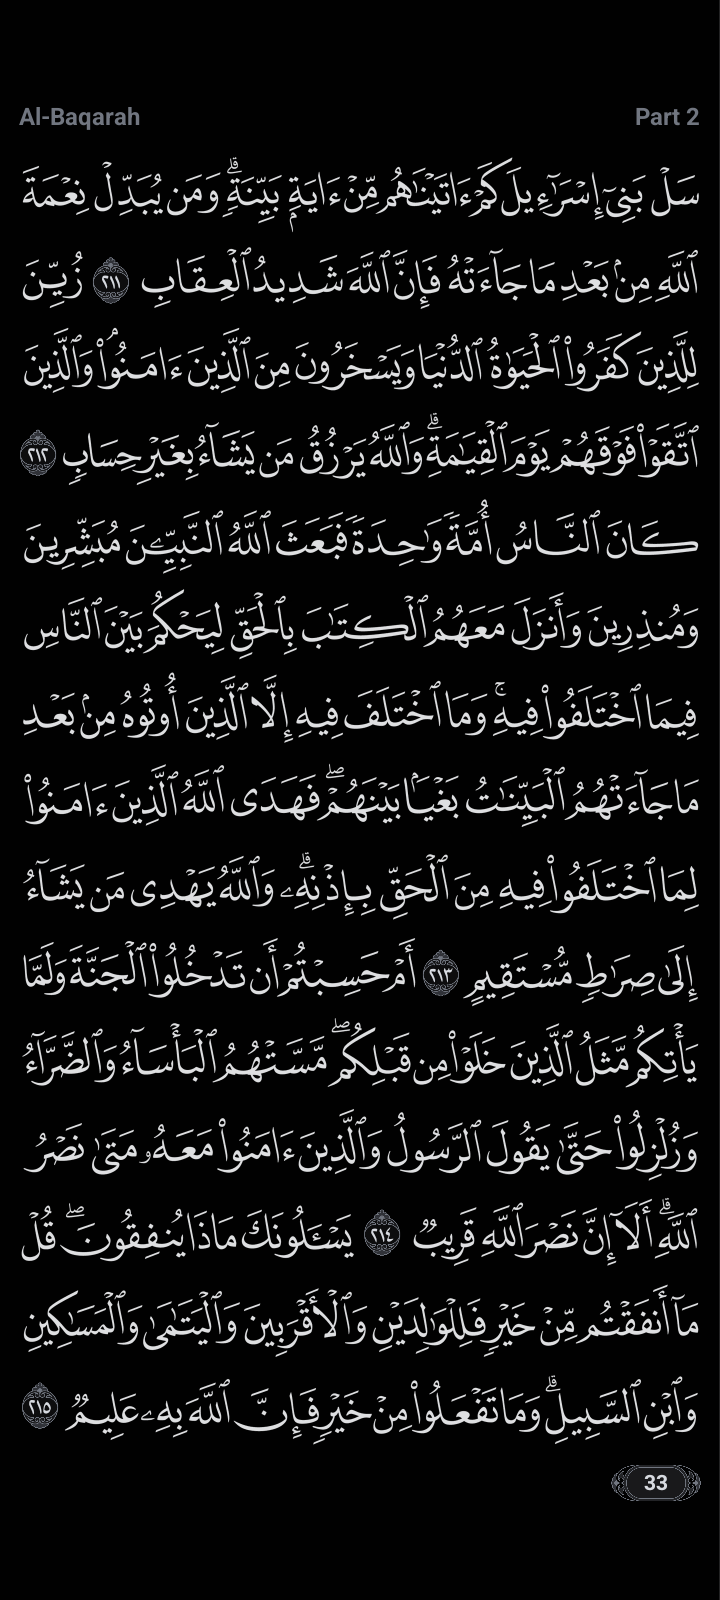 Al-Baqarah Part 2
سَلْ بَنِىٓ إِسْرَٰٓءِيلَ كَمْ ءَاتَيْنَٰهُم مِّنْ ءَايَةٍۭ بَيِّنَةٍۗ وَمَن يُبَدِّلْ نِعْمَةَ
ٱللَّهِ مِنۢ بَعْدِ مَا جَآءَتْهُ فَإِنَّ ٱللَّهَ شَدِيدُ ٱلْعِقَابِ ٢١١ زُيِّنَ
لِلَّذِينَ كَفَرُوا۟ ٱلْحَيَوٰةُ ٱلدُّنْيَا وَيَسْخَرُونَ مِنَ ٱلَّذِينَ ءَامَنُوا۟ۘ وَٱلَّذِينَ
ٱتَّقَوْا۟ فَوْقَهُمْ يَوْمَ ٱلْقِيَٰمَةِۗ وَٱللَّهُ يَرْزُقُ مَن يَشَآءُ بِغَيْرِ حِسَابٍ ٢١٢
كَانَ ٱلنَّاسُ أُمَّةً وَٰحِدَةً فَبَعَثَ ٱللَّهُ ٱلنَّبِيِّۦنَ مُبَشِّرِينَ
وَمُنذِرِينَ وَأَنزَلَ مَعَهُمُ ٱلْكِتَٰبَ بِٱلْحَقِّ لِيَحْكُمَ بَيْنَ ٱلنَّاسِ
فِيمَا ٱخْتَلَفُوا۟ فِيهِۚ وَمَا ٱخْتَلَفَ فِيهِ إِلَّا ٱلَّذِينَ أُوتُوهُ مِنۢ بَعْدِ
مَا جَآءَتْهُمُ ٱلْبَيِّنَٰتُ بَغْيًۢا بَيْنَهُمْۖ فَهَدَى ٱللَّهُ ٱلَّذِينَ ءَامَنُوا۟
لِمَا ٱخْتَلَفُوا۟ فِيهِ مِنَ ٱلْحَقِّ بِإِذْنِهِۦۗ وَٱللَّهُ يَهْدِى مَن يَشَآءُ
إِلَىٰ صِرَٰطٍ مُّسْتَقِيمٍ ٢١٣ أَمْ حَسِبْتُمْ أَن تَدْخُلُوا۟ ٱلْجَنَّةَ وَلَمَّا
يَأْتِكُم مَّثَلُ ٱلَّذِينَ خَلَوْا۟ مِن قَبْلِكُمۖ مَّسَّتْهُمُ ٱلْبَأْسَآءُ وَٱلضَّرَّآءُ
وَزُلْزِلُوا۟ حَتَّىٰ يَقُولَ ٱلرَّسُولُ وَٱلَّذِينَ ءَامَنُوا۟ مَعَهُۥ مَتَىٰ نَصْرُ
ٱللَّهِۗ أَلَآ إِنَّ نَصْرَ ٱللَّهِ قَرِيبٌ ٢١٤ يَسْـَٔلُونَكَ مَاذَا يُنفِقُونَۖ قُلْ
مَآ أَنفَقْتُم مِّنْ خَيْرٍ فَلِلْوَٰلِدَيْنِ وَٱلْأَقْرَبِينَ وَٱلْيَتَٰمَىٰ وَٱلْمَسَٰكِينِ
وَٱبْنِ ٱلسَّبِيلِۗ وَمَا تَفْعَلُوا۟ مِنْ خَيْرٍ فَإِنَّ ٱللَّهَ بِهِۦ عَلِيمٌ ٢١٥
33